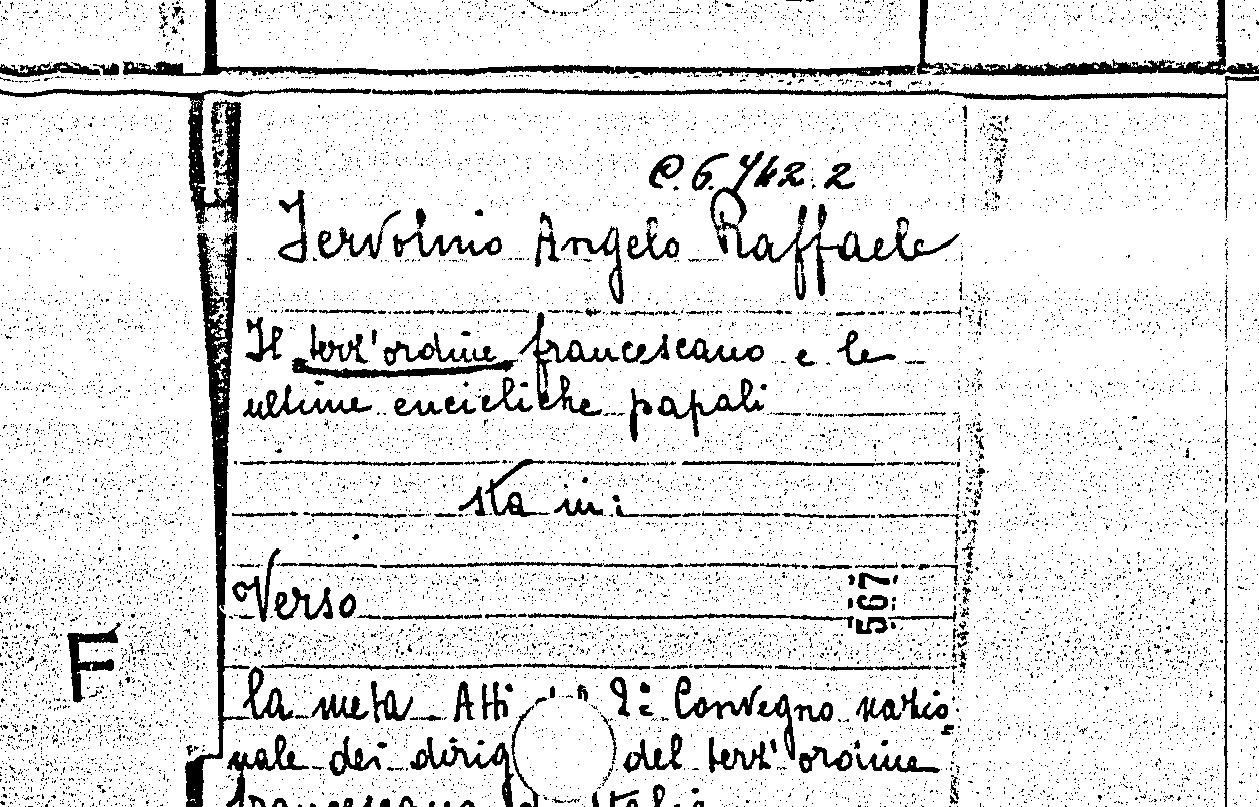 C.6.742.2
Jervolino Angelo Raffaele
Il terz'ordine francescano e le
ultime encicliche papali
sta in:
Verso
567
F
la meta. Atti 2° Convegno nazio,
nale dei dirig del terz'ordine
francescano d' Italia